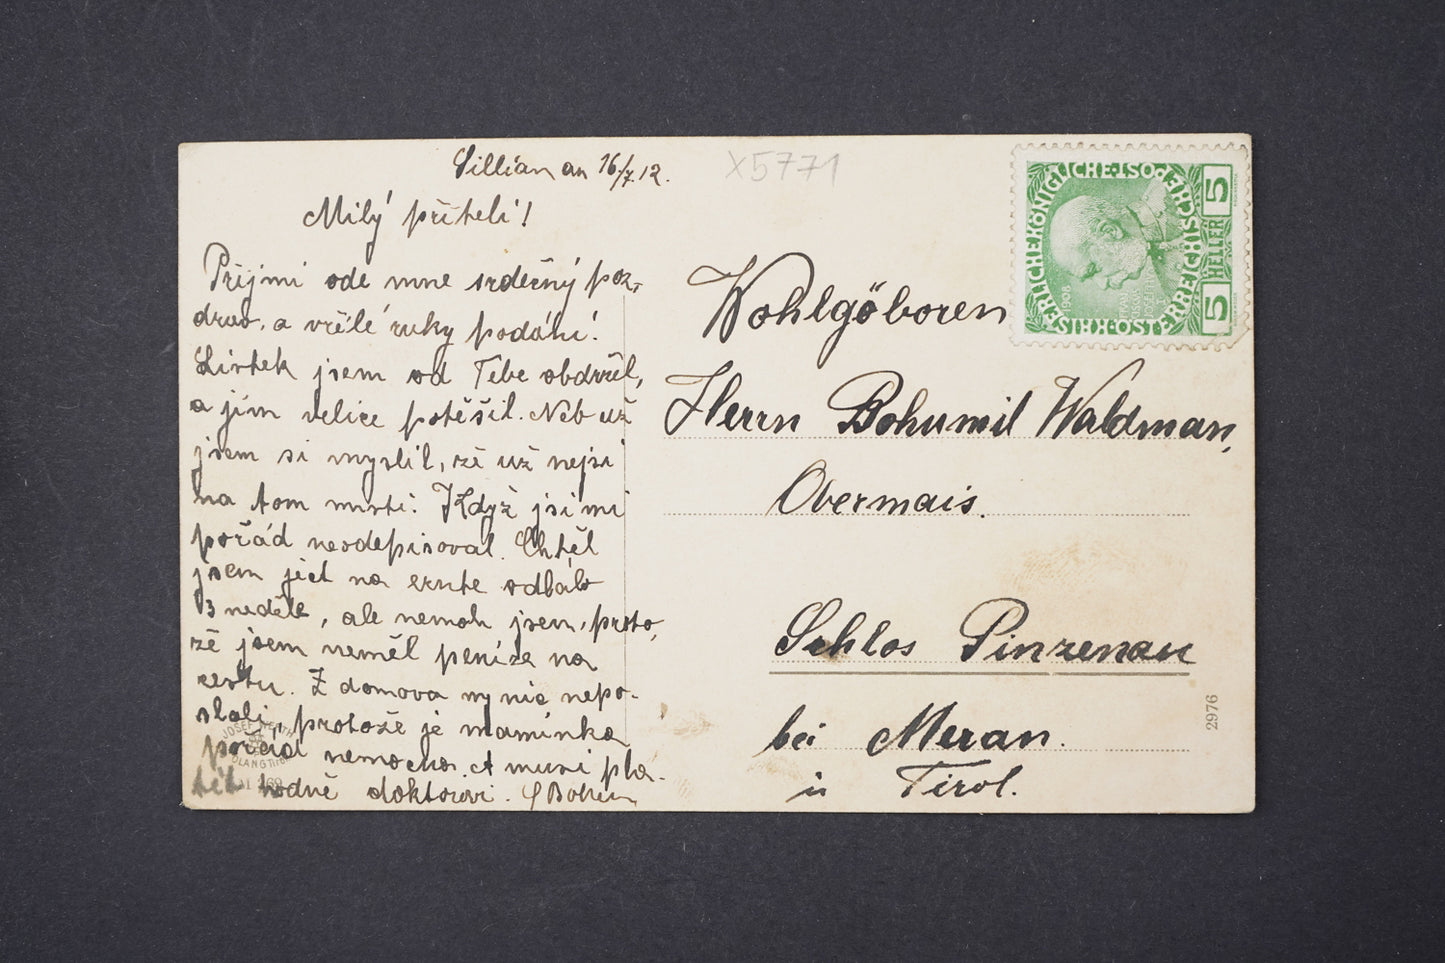 Sillian an 16/7.12.
X5771
Milý příteli!
Přijmi ode mne srdečný poz-
drav, a vřelé ruky podání!
Listek jsem od Tebe obdržel,
a jím velice potěšil. Neb už
jsem si myslil, že už nejsi
na tom místě. Když jsi mi
pořád neodepisoval. Chtěl
jsem jet na ernte odbálo
3 neděle, ale nemoh jsem, proto,
že jsem neměl peníze na
cestu. Z domova my nic nepo-
slali, protože je maminka
pořád nemocna. A musi pla-
tět hodně doktorovi. S Bohem
Wohlgöboren
Herrn Bohumil Waldman,
Obermais.
Schlos Pinzenau
bei Meran.
in Tirol.
KAISERLICHE KÖNIGLICHE ÖSTERREICHISCHE POST
5 HELLER 5
1908
FRANZ JOSEPH I
2976
JOSEF
OLANG Tirol